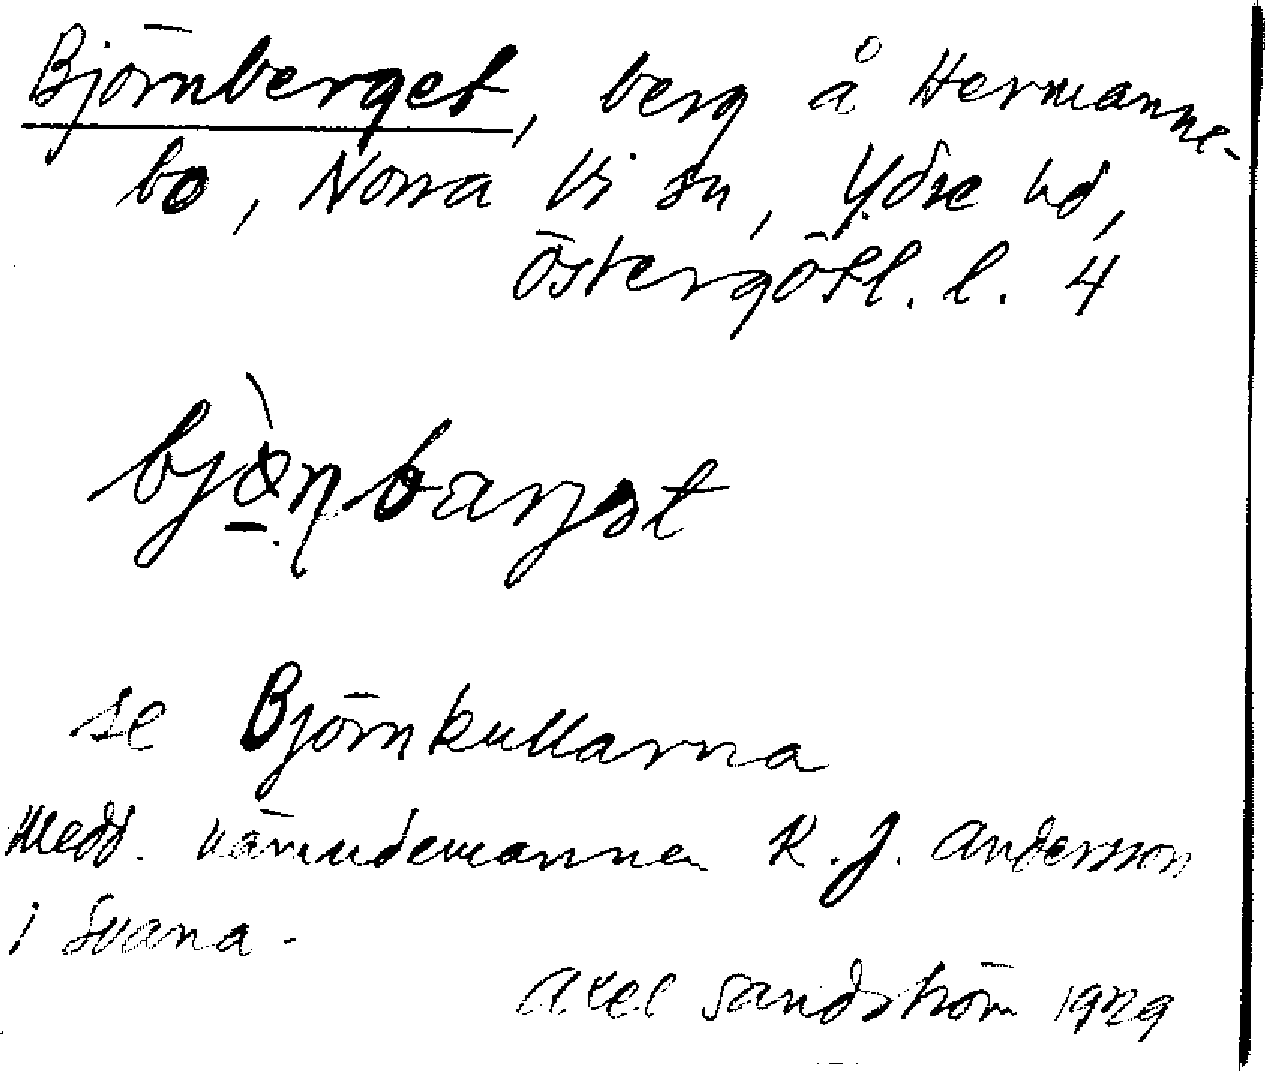 Björnberget, berg å Hermanne-
bo, Norra Vi sn, Ydre hd,
Östergötl. l. 4
bjǿ̠ṇbarjət
se Björnkullarna
Medd. nämndemannen K. J. Andersson
i Svana.
Axel Sandström 1929